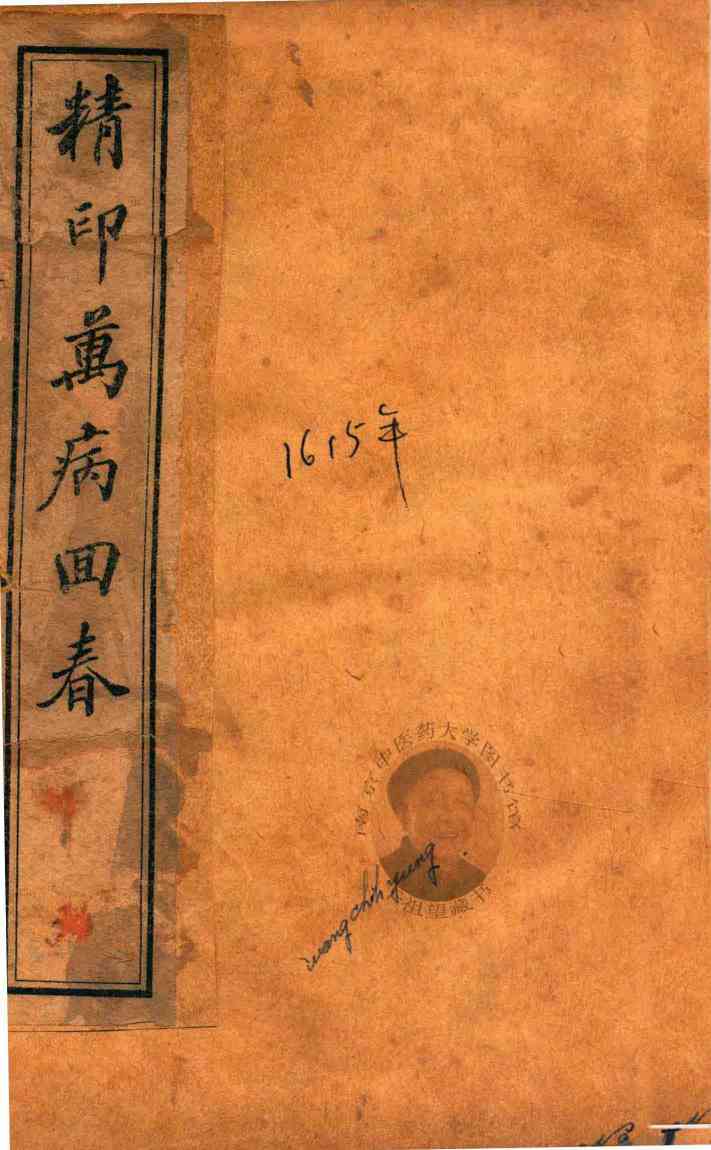 精印萬病回春
1615年
南京中医药大学图书馆
祖望藏书
wang chih yung